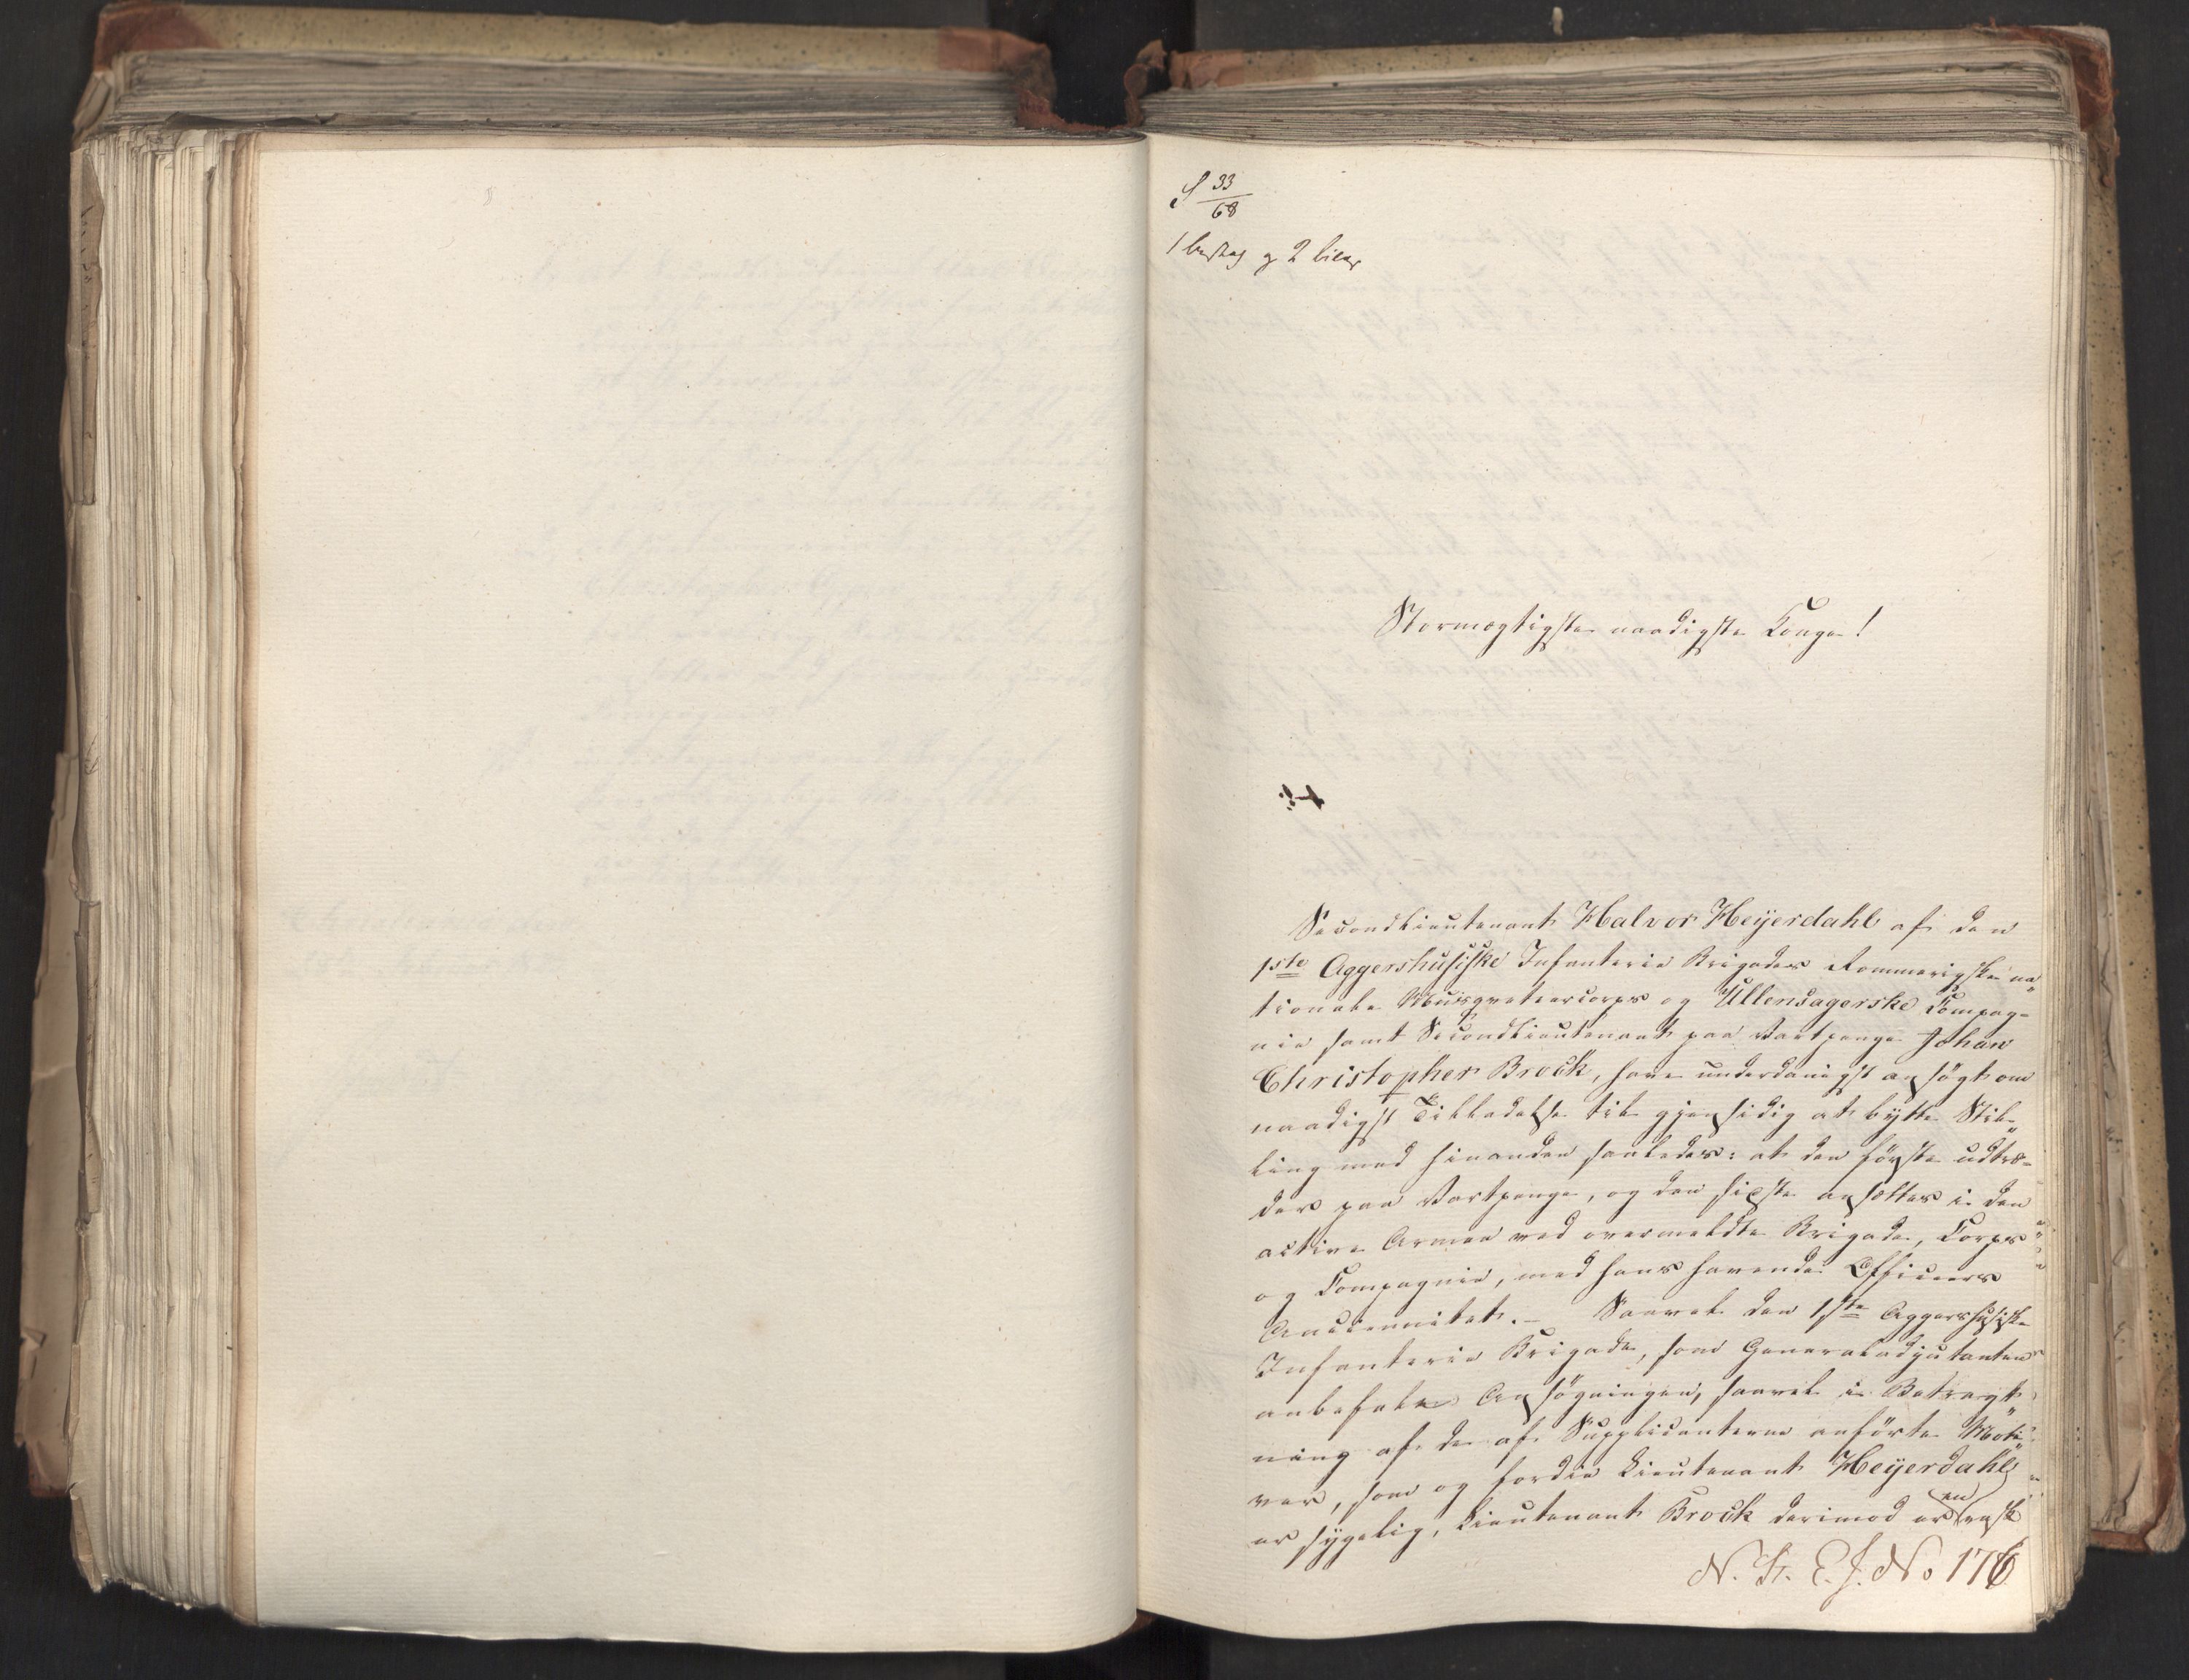 S 33/68
1 bestag og 2 bilag
Stormægtigste naadigste Konge!
Secondlieutenant Halvor Heyerdahl af den
1ste Aggershusiske Infanterie Brigades Rommerigske na„
tionale Musqveteercorps og Ullensagerske Compag-
nie samt Secondlieutenant paa Vartpenge Johan
Christopher Brock, have underdanigst ansøgt om
naadigst Tilladelse til gjensidig at bytte Stil„
ling med hinanden saaledes: at den første udtræ-
der paa Vartpenge, og den sidste ansættes i den
active Armee ved overmeldte Brigade, Corps
og Compagnie, med hans havende Officeers
Anciennitet. – Saavel den 1ste Aggershusiske
Infanterie Brigade, som Generaladjutanten
anbefale Ansøgningen, saavel i Betragt„
ning af de af Supplicanterne anførte Moti„
ver, som og fordie Lieutenant Heyerdahl
er sygelig, Lieutenant Brock derimod er en rask
N. St. E. J. No 176